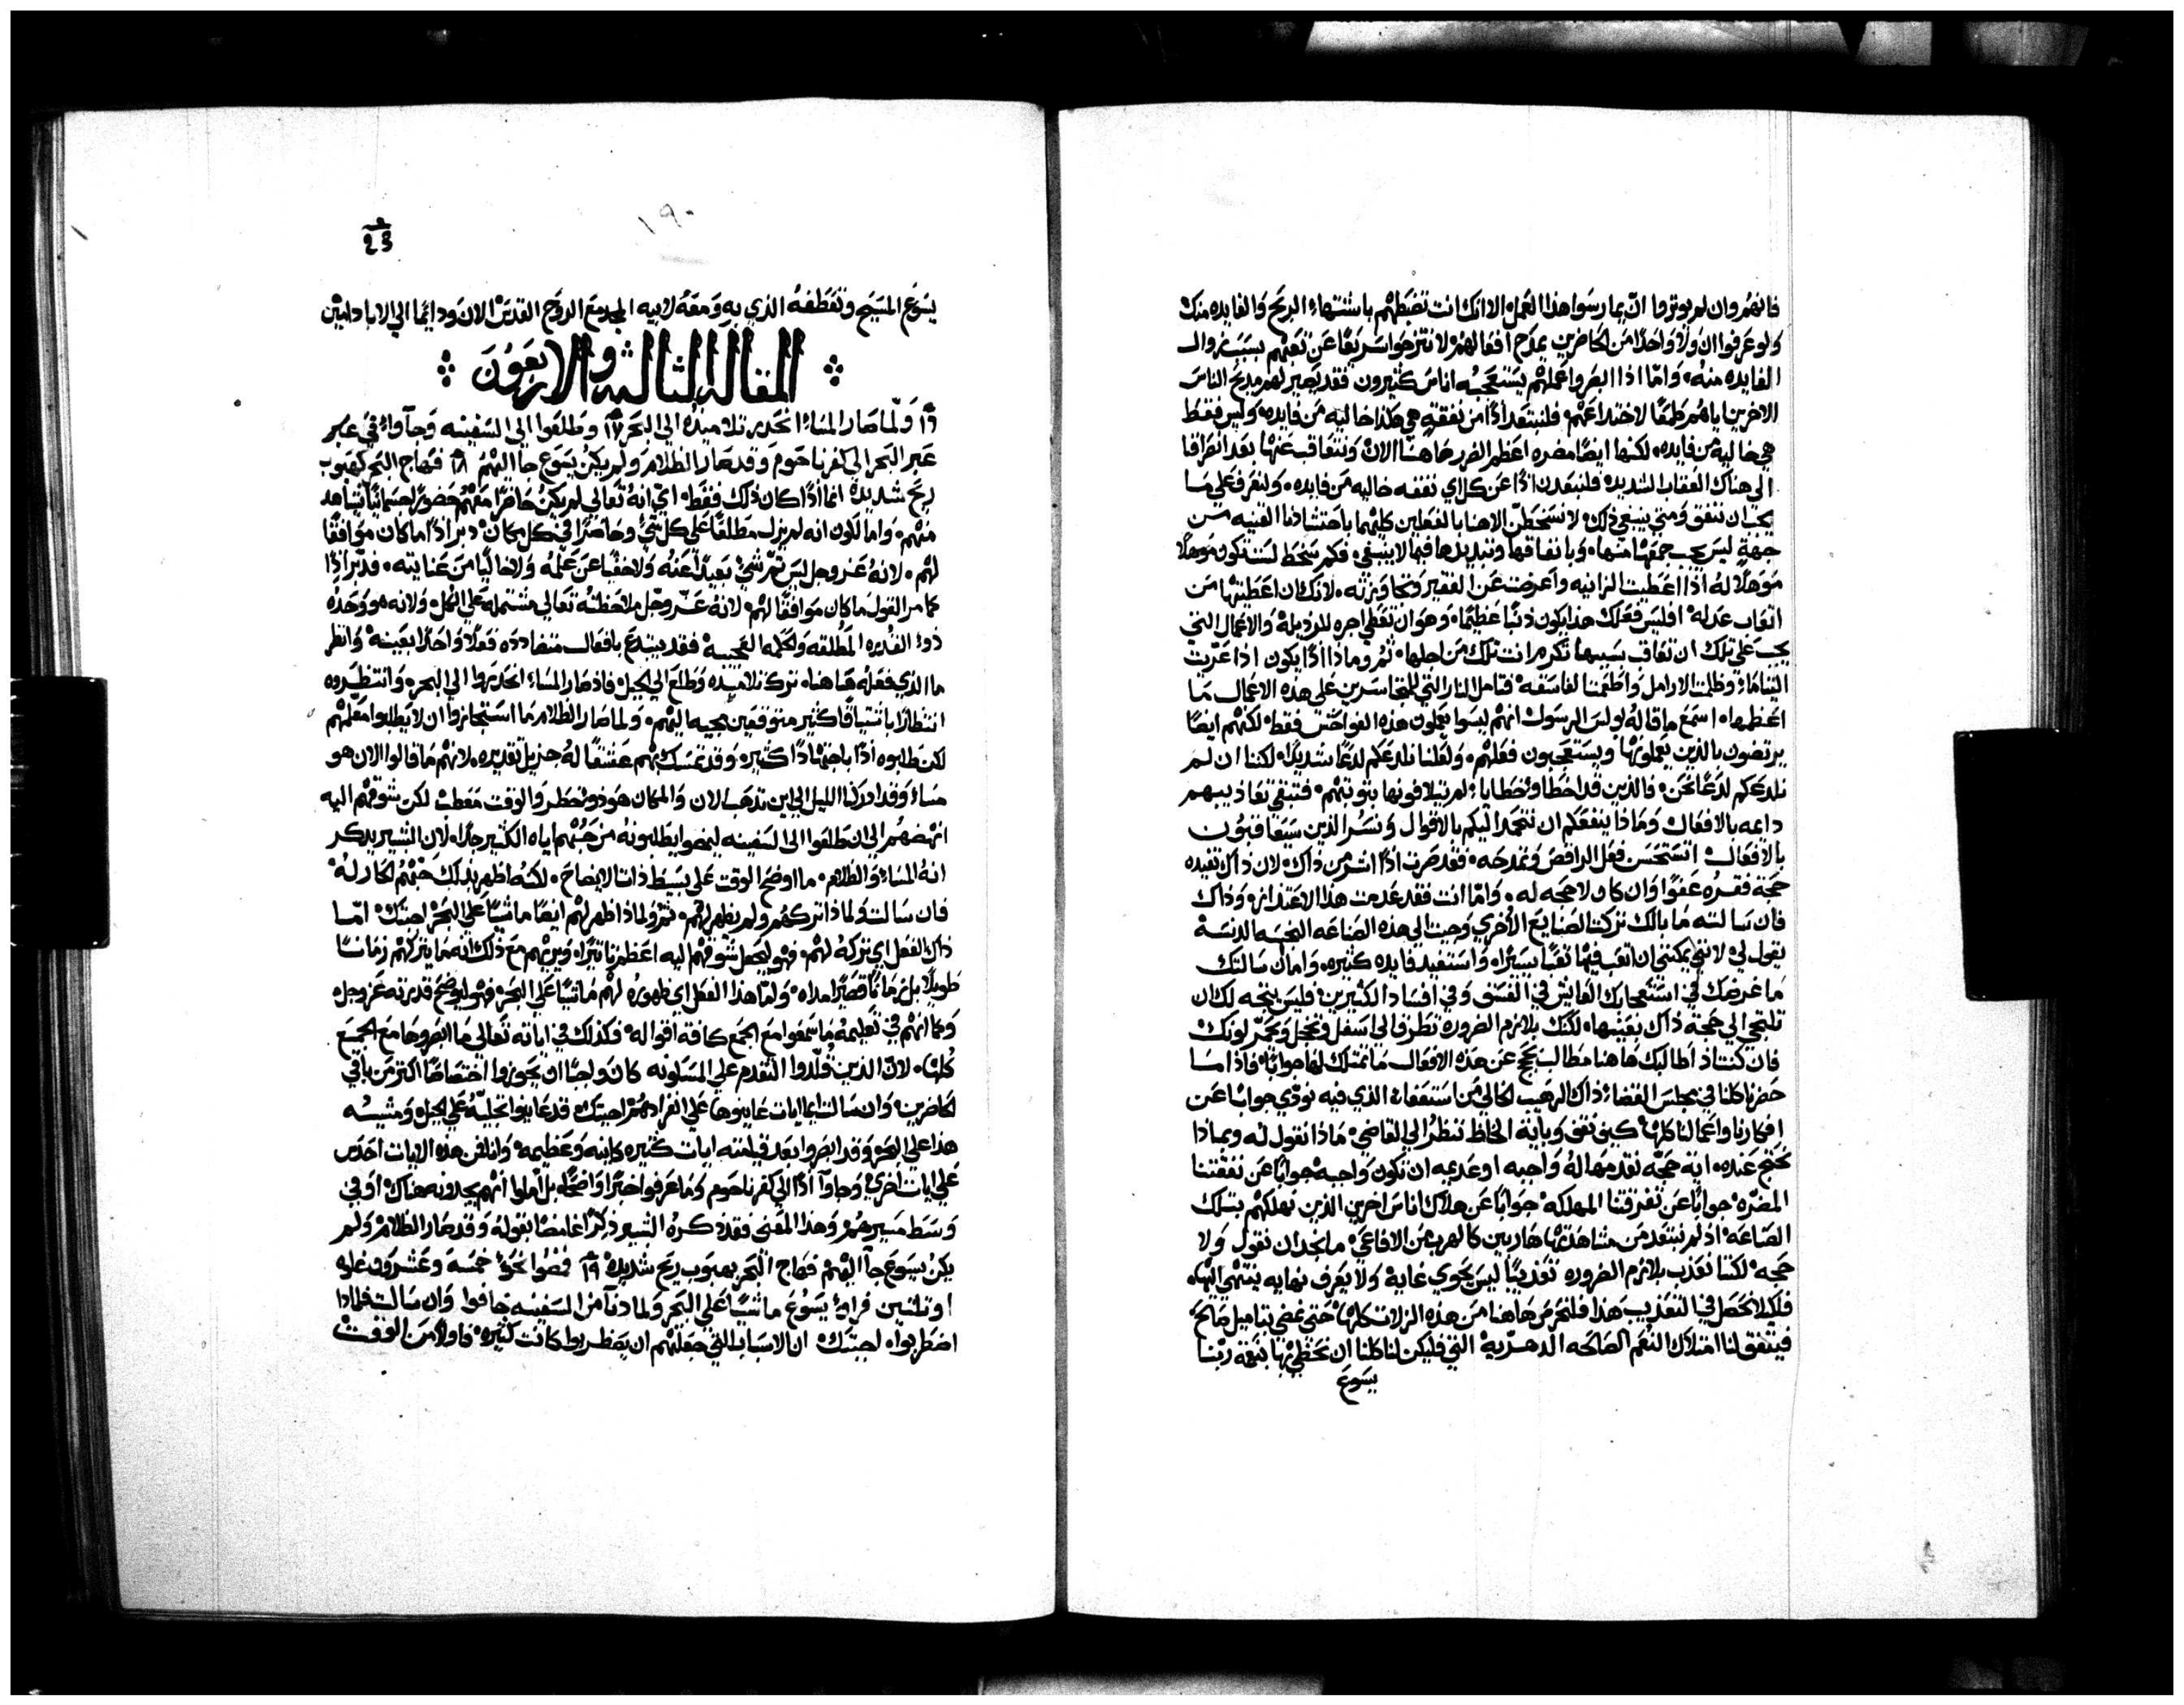 فانهم وان لم يوثروا ان يمارسوا هذا العمل الا انك انت تضبطهم باشتهاء الربح والفايده منك
ولو عرفوا ان ولا واحدًا من الحاضرين يمدح افعالهم لانتزحوا سريعًا عن تعبهم بسبب زوال
الفايده منه، وامّا اذا ابصروا عملهم يستعجبه اناس كثيرون فقد يصير لهم مديح الناس
الاخرين اياهم طمعًا لاختداعهم. فلنبتعد اذًا من نفقةٍ هي هكذا خاليه من فايده. وليس فقط
هي خاليه من فايده. لكنها ايضًا مضره اعظم الضرر هاهنا الان ونتعاقب عنها بعد انصرافنا
الي هناك العقاب الشديد. فلنبتعدن اذًا عن كل اي نفقه خاليه من فايده. ولنعرف علي ما
يجب ان ننفق ومتي ينبغي ذلك. لا نسخطنّ الاهنا بالفعلين كليهما باحتشادنا القنيه من
جهةٍ ليس يجب جمعها منها، وبانفاقها وتبديدها فيما لا ينبغي. فكم سخط لست تكون موهلاً
موهلاً له اذا اعطيت الزانيه واعرضت عن الفقير وتجاوزته. لانك ان اعطيتها من
اتعاب عدله افليس فعلك هذا يكون ذنبًا عظيمًا، وهو ان تعطي اجره للرذيلة والاعمال التي
يجب علي تلك ان تعاقب بسببها تكرم انت تلك من اجلها. ثم وماذا اذًا يكون اذا عرّيت
اليتاما وظلمت الارامل واطعمت الفاسقه فتامل النار التي للمتجاسرين علي هذه الاعمال ما
اعظمها. اسمع ما قاله بولس الرسول انهم ليسوا يعملون هذه الفواحش فقط. لكنهم ايضًا
يرتضون بالذين يعملونها ويستعجبون فعلهم. ولعلنا نلدعكم لدعًا شديدًا، لكننا ان لم
نلدعكم لدعًا نحن، فالذين قد اخطاوا خطايا لم يتلافونها بتوبتهم. فتبقي تعاذيبهم
داعه بالافعال وماذا ينفعكم ان نتحمد اليكم بالاقوال ونسر الذين سيعاقبون
بالافعال اتستحسن فعل الراقص وتمدحه. فقد صرت اذًا اشر من ذاك. لان ذاك تفيده
حجة فقره عفوًا وان كان ولا حجه له. وامّا انت فقد عدمت هذا الاعتذار. وذاك
فان سالته ما بالك تركت الصنايع الاخري وجيت الي هذه الصناعه النجسه الدنسه
يقول لي لانني يمكنني ان اتعب فيها تعبًا يسيرًا، واستفيد فايده كثيره. واما ان سالتك
ما غرضك في استعجابك العايش في الفسق وفي افساد الكثيرين فليس يتجه لك ان
تلتجي الي حجة ذاك بعينها، لكنك بلازم الضروره تطرق الي اسفل وتخجل ويحمرّ لونك
فان كنت اذ اطالبك هاهنا مطالب بحجج عن هذه الافعال ما تمتلك لها جوابًا، فاذا ما
حضرنا كلنا في مجلس القضاء ذاك الرهيب الخالي من استعفاء الذي فيه نودّي جوابًا عن
افكارنا واعمالنا كلها. كيف نقف وبايه الحاظ ننظر الي القاضي. ماذا نقول له وبماذا
نحتج عنده. اية حجّه نقدمها له واجبه او عديمه ان تكون واجبه جوابًا عن نفقتنا
المضرّه جوابًا عن تفرقتنا المهلكه. جوابًا عن هلاك اناس اخرين الذين نهلكهم بتلك
الصناعه. اذ لم نبتعد من مشاهدتها هاربين كالهرب من الافاعي. ما نجد ان نقول ولا
حجه. لكننا نعذب بلازم الضروره تعذيبًا ليس يحوي غاية ولا يعرف نهايه ينتهي اليها.
فلكيلا نحصل في التعذيب هذا فلنحرص هاهنا من هذه الزلات كلها، حتي نمضي بتاميل صالح،
فيتفق لنا امتلاك النعم الصالحه الدهريه التي فليكن لنا كلنا ان نحظي بها بنعمة ربّنا
يسوع
١٩٠
23
يسوع المسيح وتعطفه الذي به ومعه لابيه المجد مع الروح القدس الان ودايمًا الي الاباد امين
المقالة الثالثه والاربعون
١٦ ولمّا صار المساء انحدر تلاميذه الي البحر ١٧ وطلعوا الي السفينه وجآوا في عبر
عبر البحر الي كفرناحوم وقد صار الظلام ولم يكن يسوع جا اليهم ١٨ فهاج البحر بهبوب
ريح شديدة انما اذًا كان ذلك فقط. اي انه تعالي لم يكن حاضرًا معهم حضورًا جسمانيًا يشاهد
منهم. واما لكون انه لم يزل مطلقًا علي كل شيء وحاضرًا في كل مكان. دبر اذًا ما كان موافقًا
لهم. لانه عز وجل ليس ثم شيء بعيدًا عنه ولا خفيًا عن علمه ولا خاليًا من عنايته. فدبّر اذًا
كما مر القول ما كان موافقًا لهم. لانه عزّ وجل ملاحظته تعالي مشتملة علي الكل، ولانه هو وحده
ذو القدره المطلقه والحكمه العجيبه فقد يبتدع بافعال متضادده فعلاً واحدًا بعينه وانظر
ما الذي فعله هاهنا، ترك تلاميذه وطلع الي الجبل. فاذ صار المساء انحدروا الي البحر، وانتظروه
انتظارًا باشتياقًا كثير متوقعين مجيه اليهم. ولما صار الظلام ما استجازوا ان لا يطلبوا معلمهم
لكن طلبوه اذًا باجتهادًا كثير. وقد تمسك بهم عشقًا له جزيل تقديره. لانهم ما قالوا الان هو
مساء وقد ادركنا الليل الي اين نذهب الان والمكان هو ذو خطر والوقت معطب. لكن شوقهم اليه
انهضهم الي ان طلعوا الي السفينه ليمضوا يطلبونه من حبهم اياه الكثير جدًا. لان البشير يذكر
انه المساء والظلام. ما اوضح الوقت علي بسيط ذات الايضاح. لكنه اظهر بذلك حبهم الحار له
فان سالت ولماذا تركهم ولم يظهر لهم. ثم ولماذا ظهر لهم ايضًا ماشيًا علي البحر اجبتك. امّا
ذاك الفعل اي تركه لهم. فهو ليجعل شوقهم اليه اعظم تاثيرًا، ويريهم مع ذلك انه ما يتركهم زمانًا
طويلاً بل زمانًا قصيرًا مداه. وامّا هذا الفعل اي ظهوره لهم ماشيًا علي البحر فهو ليوضح قدرته عز وجل
وكما انهم في تعليمه ما سمعوا مع الجمع كافة اقواله. فكذلك في اياته تعالي ما ابصروها مع الجمع
كلها. لان الذين قلّدوا التقدم علي المسكونه كان واجبًا ان يحوزوا اختصاصًا اكثر من باقي
الحاضرين. وان سالت ايما ايات عاينوها علي انفرادهم، اجبتك قد عاينوا تجليه علي الجبل ومشيه
هذا علي البحر وقد ابصروا بعد قيامته ايات كثيره كاينه وعظيمه. وانا فمن هذه الايات احدس
علي ايات اخري، وجاوا اذًا الي كفرناحوم وما عرفوا خبرًا واضحًا، بل املوا انهم يجدونه هناك. او في
وسط مسيرهم، وهذا المعني فقد ذكره البشير ذكرًا غامضًا بقوله وقد صار الظلام ولم
يكن يسوع جآ اليهم فهاج البحر بهبوب ريح شديدة ١٩ فمضوا نحو خمسه وعشرون غلوه
او ثلثين فراوا يسوع ماشيًا علي البحر ولما دنا من السفينه خافوا وان سالت فلماذا
اضطربوا، اجبتك ان الاسباب التي جعلتهم ان يضطربوا كانت كثيره. فاولاً من الوقت